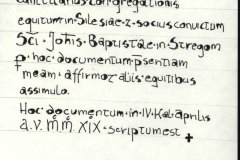 cancellarius congregationis
equitum in Silesiae z. socius convictum
Sti. Johīs. Baptistae. in Stregom
p. hoc. documentum psentiam
meam. affirmor aliis equitibus
assimulo.
Hoc documentum in IV Kal aprilis
a.v. m̄.m̄. XIX. scriptumest +